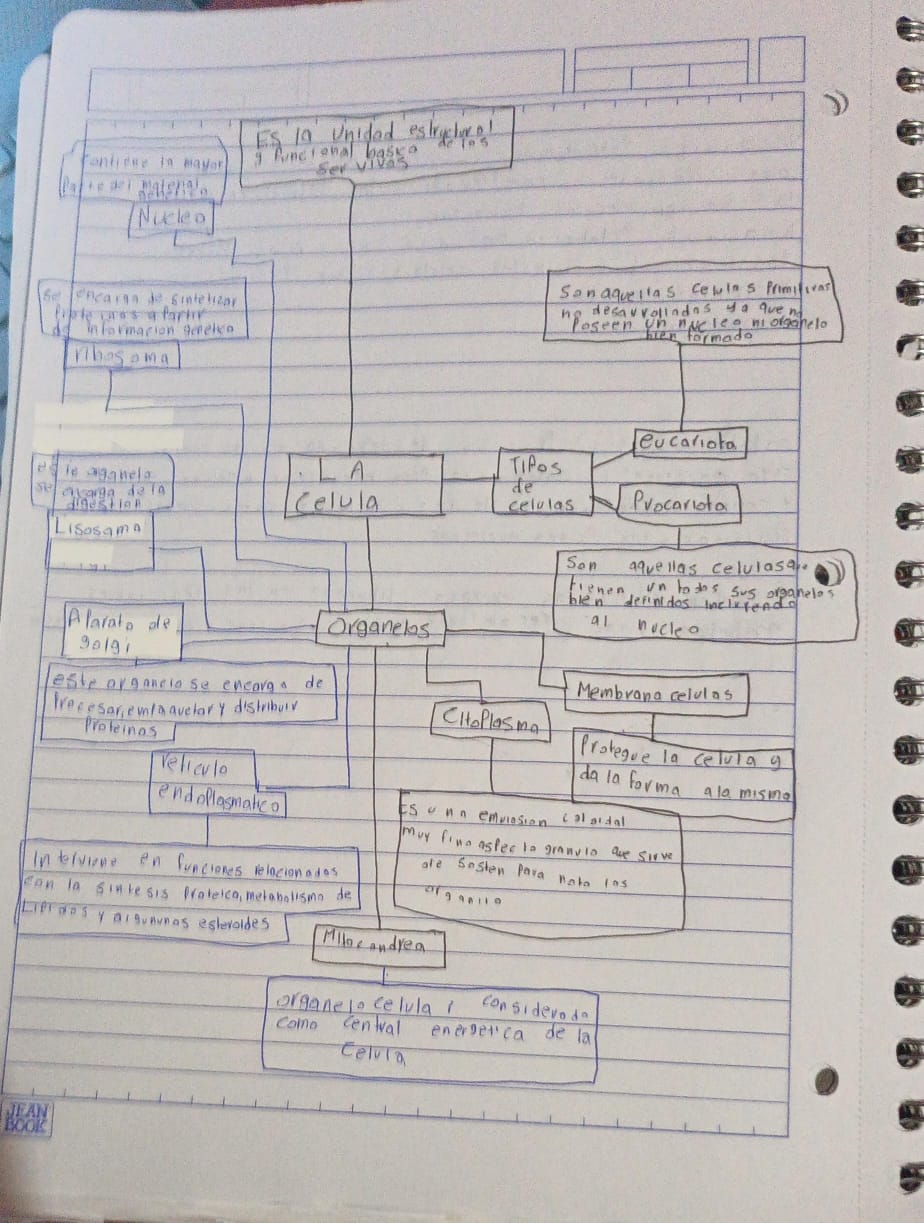 Es la unidad estructural
y funcional basica de los
ser vivos
contiene la mayor
Parte del material
genetico
Nucleo
se encarga de sintetizar
Proteinas apartir
de informacion genetica
ribosoma
Son aquellas celulas Primitivas
no desarrolladas ya que no
Poseen un nucleo ni organelo
bien formado
eucariota
LA
celula
TIPOS
de
celulas
Procariota
organelo
se encarga de la
digestion
Lisosama
Son aquellas celulas
tienen un todos sus organelos
bien definidos incluyendo
al nucleo
Aparato de
golgi
organelos
este organelo se encarga de
Procesar, empaquetar y distribuir
Proteinas
Membrana celulas
Citoplasma
Protegue la celula y
da la forma a la misma
reticulo
endoplasmatico
Es una emulsion coloidal
muy fino aspecto granulo que sirve
de sosten para los
organilo
Interviene en funciones relacionadas
con la sintesis proteica, metabolismo de
Lipidos y algununas esteroides
Mitocondrea
organelo celula considerada
como central energetica de la
celula
JEAN
BOOK